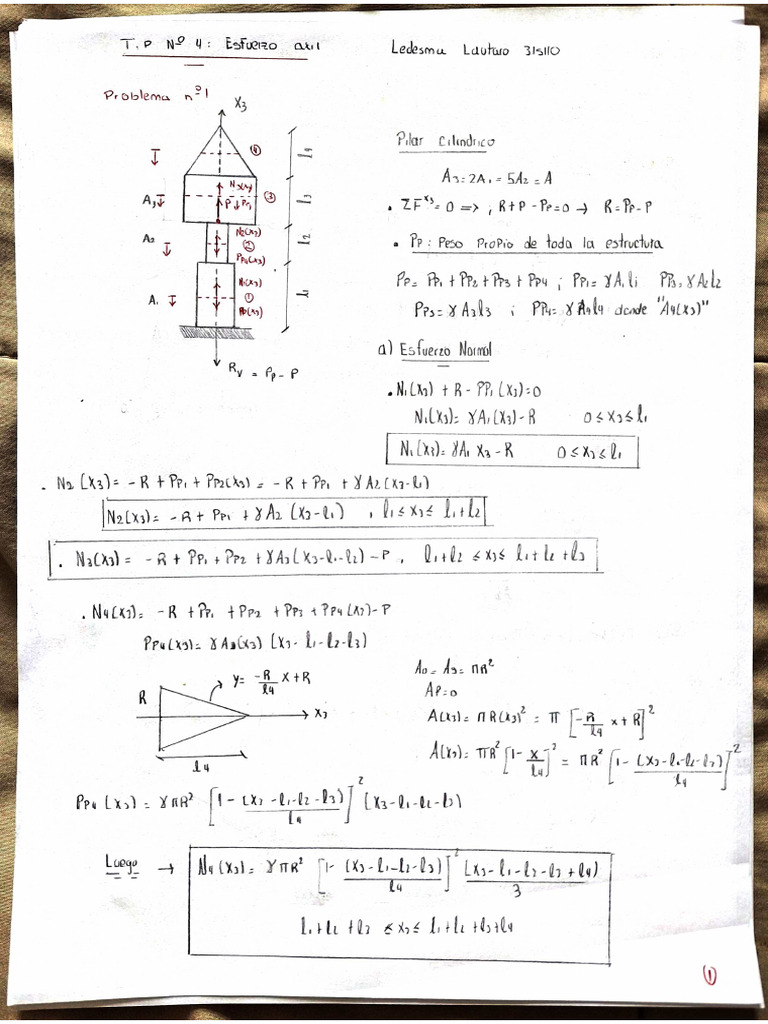 T.P Nº 4: Esfuerzo axil
Ledesma Lautaro 31510
Problema nº1
X3
④
l4
A3
N3(x3)
P
PP3
③
l3
A2
N2(x3)
②
PP2(x3)
l2
A1
N1(x3)
①
l1
RV = PP - P
Pilar Cilíndrico
A3=2A1=5A2=A
. ΣF^x3=0 => , R+P-PP=0 → R=PP-P
. PP: Peso Propio de toda la estructura
PP= PP1 + PP2 + PP3 + PP4 ; PP1=γA1l1 PP2=γA2l2
PP3=γA3l3 ; PP4=γA4l4 donde "A4(x3)"
a) Esfuerzo Normal
. N1(x3) + R - PP1(x3)=0
N1(x3)= γA1(x3)-R 0≤x3≤l1
N1(x3)= γA1 x3 - R 0≤x3≤l1
. N2 (x3)= -R + PP1 + PP2(x3) = -R + PP1 + γA2(x3-l1)
N2(x3)= -R + PP1 + γA2 (x3-l1) , l1≤x3≤l1+l2
. N3(x3)= -R + PP1 + PP2 + γA3(x3-l1-l2) - P , l1+l2 ≤x3≤ l1+l2+l3
. N4(x3)= -R + PP1 + PP2 + PP3 + PP4(x3)-P
PP4(x3)= γA3(x3) (x3-l1-l2-l3)
y= -R/l4 x+R
R
x3
l4
A0= A3= πR²
AP=0
A(x3)= πR(x3)² = π [-R/l4 x+R]²
A(x3)= πR² [1- x/l4]² = πR² [1 - (x3-l1-l2-l3)/l4]²
PP4 (x3)= γπR² [1 - (x3-l1-l2-l3)/l4]² (x3-l1-l2-l3)
Luego → N4(x3)= γπR² [1- (x3-l1-l2-l3)/l4]² (x3-l1-l2-l3+l4)/3
l1+l2+l3 ≤x3≤ l1+l2+l3+l4
①